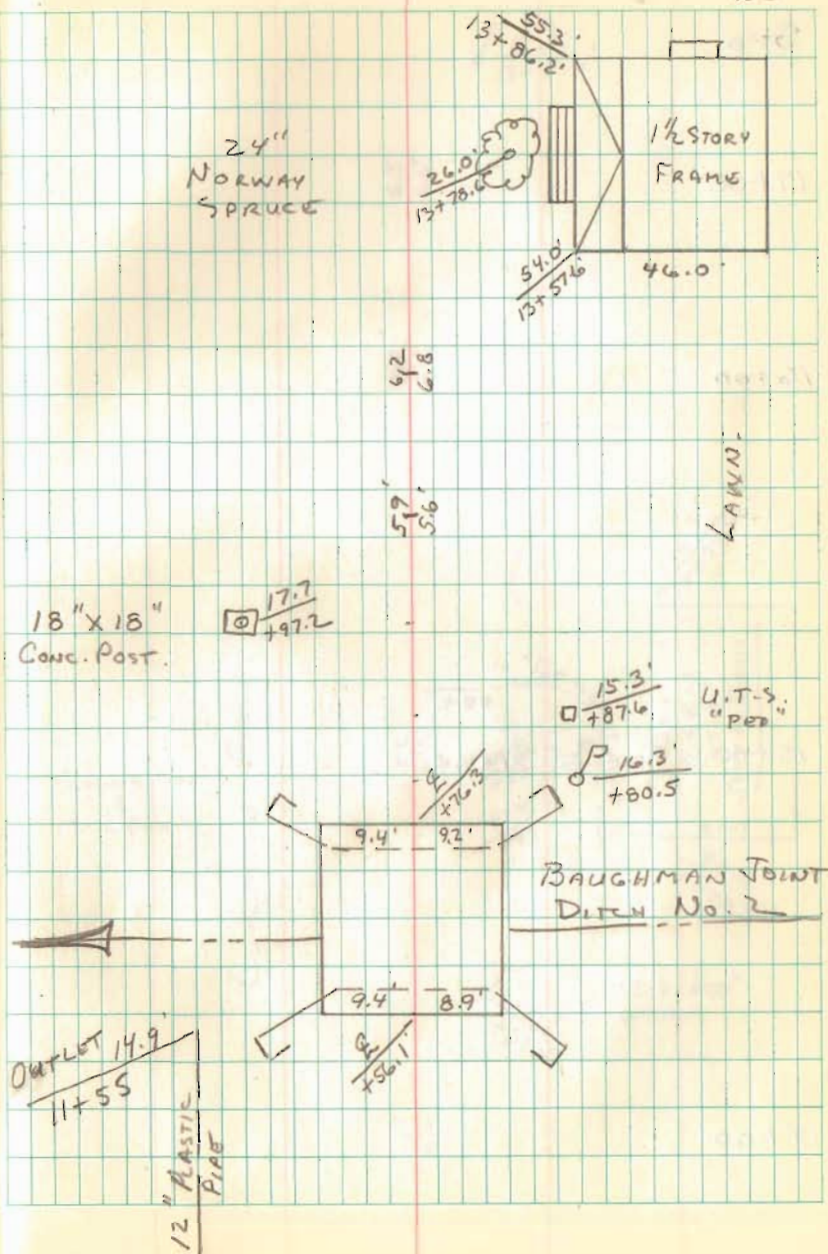 55.3'
13+86.2'
24"
NORWAY
SPRUCE
26.0'
13+78.6'
1½ STORY
FRAME
54.0'
13+57.6'
46.0'
6.2 6.8
5.9' 5.6'
LAWN.
18"X18"
CONC. POST.
17.7
+97.2
15.3'
+87.6
U.T.S.
"PED"
16.3'
+80.5
℄
+76.3
9.4' 9.2'
BAUGHMAN JOINT
DITCH No. 2
9.4' 8.9'
℄
+56.1'
OUTLET 14.9'
11+55
12" PLASTIC
PIPE